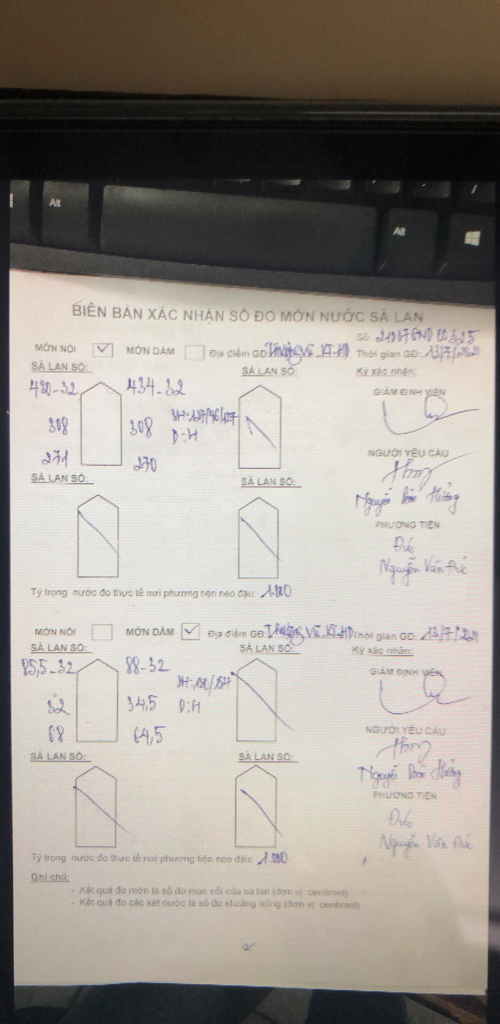 Alt
Alt
BIÊN BẢN XÁC NHẬN SỐ ĐO MỚN NƯỚC SÀ LAN
Số:
MỚN NỔI MỚN DẦM Địa điểm GĐ: Thời gian GĐ: 13/7/2021
SÀ LAN SỐ: SÀ LAN SỐ: Ký xác nhận:
430-32 434-32 GIÁM ĐỊNH VIÊN
308 308 D:H
271 270 NGƯỜI YÊU CẦU
SÀ LAN SỐ: SÀ LAN SỐ:
Nguyễn Hưởng
PHƯƠNG TIỆN
Đức
Nguyễn Văn Đức
Tỷ trọng nước đo thực tế nơi phương tiện neo đậu: 1.000
MỚN NỔI MỚN DẦM Địa điểm GĐ: Thời gian GĐ: 13/7/2021
SÀ LAN SỐ: SÀ LAN SỐ: Ký xác nhận:
85,5-32 88-32 GIÁM ĐỊNH VIÊN
32 34,5 D:H
68 64,5 NGƯỜI YÊU CẦU
SÀ LAN SỐ: SÀ LAN SỐ:
Nguyễn Hưởng
PHƯƠNG TIỆN
Đức
Nguyễn Văn Đức
Tỷ trọng nước đo thực tế nơi phương tiện neo đậu: 1.000
Ghi chú:
- Kết quả đo mớn là số đo mạn nổi của sà lan (đơn vị: centimet)
- Kết quả đo các két nước là số đo khoảng trống (đơn vị: centimet)